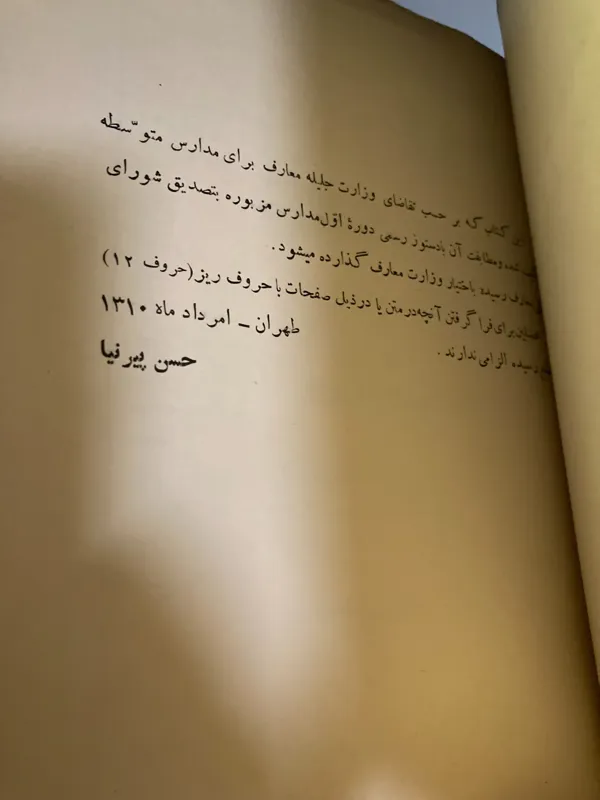 این کتاب که بر حسب تقاضای وزارت جلیله معارف برای مدارس متوّسطه
شده ومطابقت آن بادستور رسمی دورهٔ اوّل‌مدارس مزبوره بتصدیق شورای
معارف رسیده باختیار وزارت معارف گذارده میشود.
برای‌فرا گرفتن آنچه‌درمتن یا درذیل صفحات با حروف ریز(حروف ۱۲)
رسیده الزامی‌ندارند.
طهران ـ امرداد ماه ۱۳۱۰
حسن پیرنیا